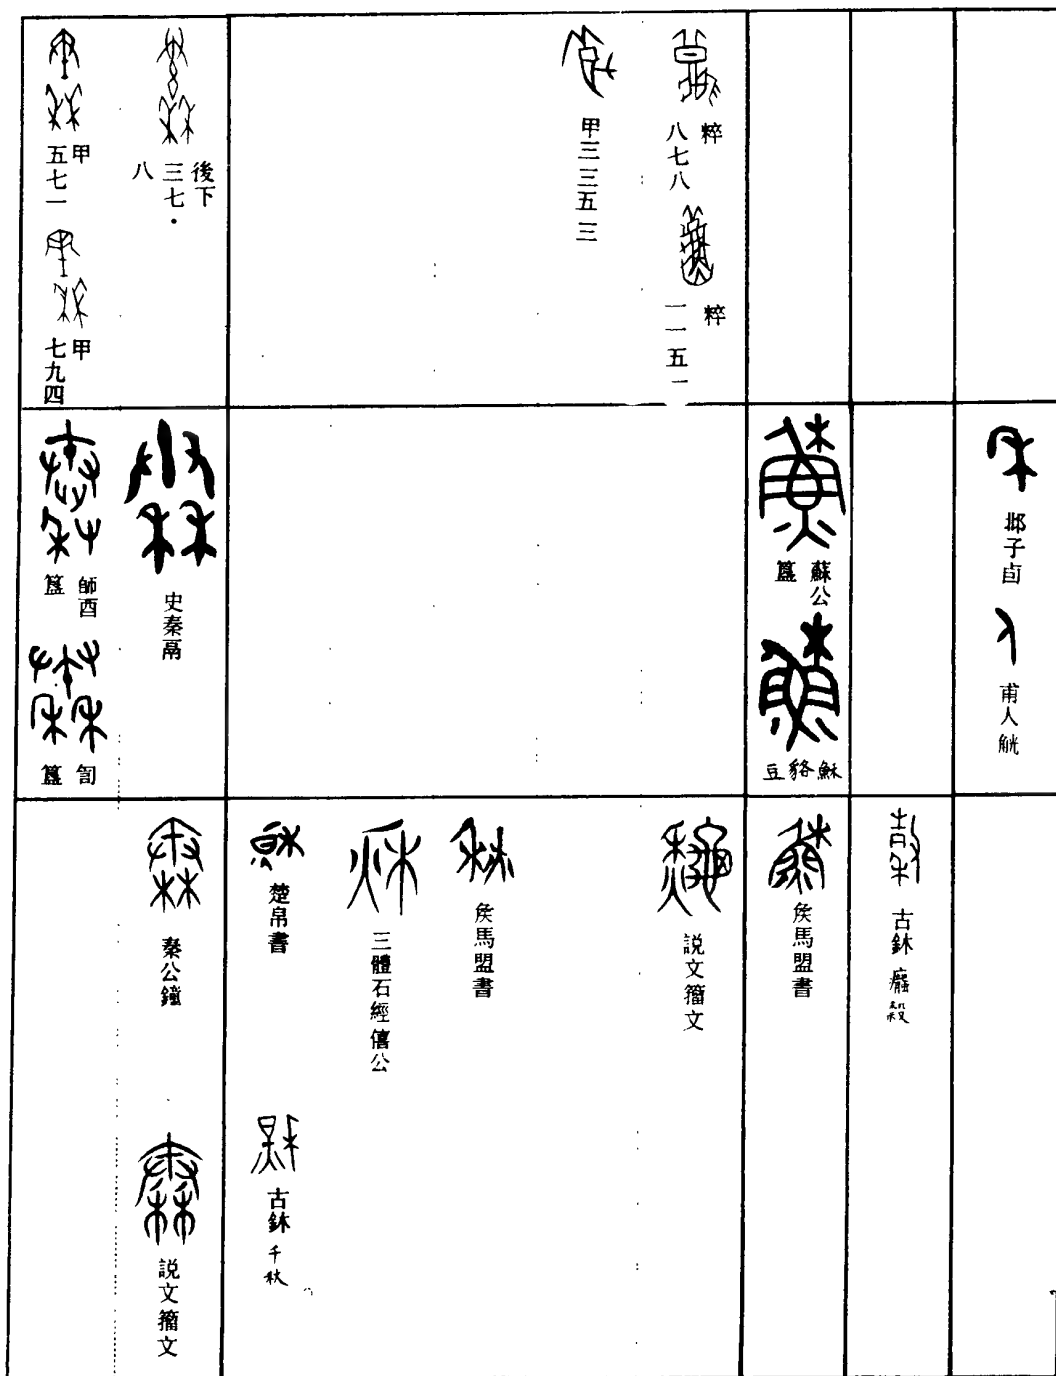 粹
八七八
粹
一一五一
甲三三五三
後下
三七·
八
甲
五七一
甲
七九四
邶子卣
甫人觥
蘇公
簋
穌貉豆
史秦鬲
師酉
簋
訇簋
古鉨
穀
侯馬盟書
説文籀文
侯馬盟書
三體石經僖公
楚帛書
古鉨千秋
秦公鐘
説文籀文